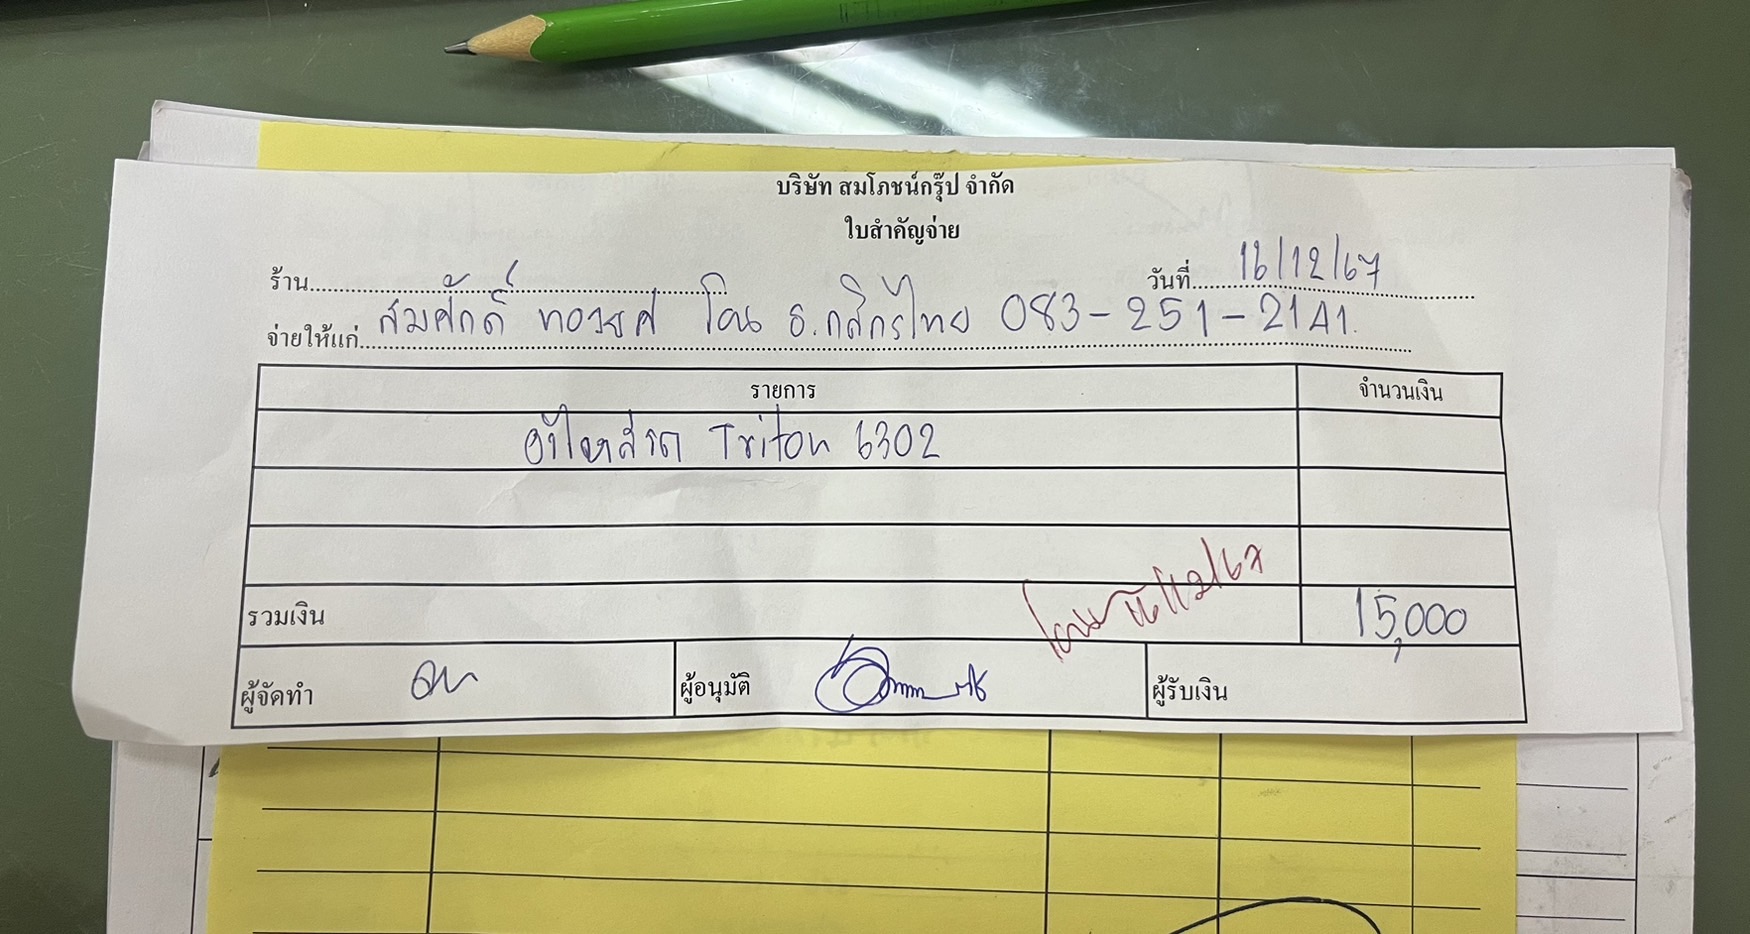 บริษัท สมโภชน์กรุ๊ป จำกัด
ใบสำคัญจ่าย
ร้าน
วันที่ 16/12/67
จ่ายให้แก่ สมศักดิ์ ทองยศ โอน ธ.กสิกรไทย 083-251-2141.
รายการ จำนวนเงิน
อำไหล่รถ Triton 6302
โอนแล้ว 16/12/67
รวมเงิน 15,000
ผู้จัดทำ ผู้อนุมัติ ผู้รับเงิน